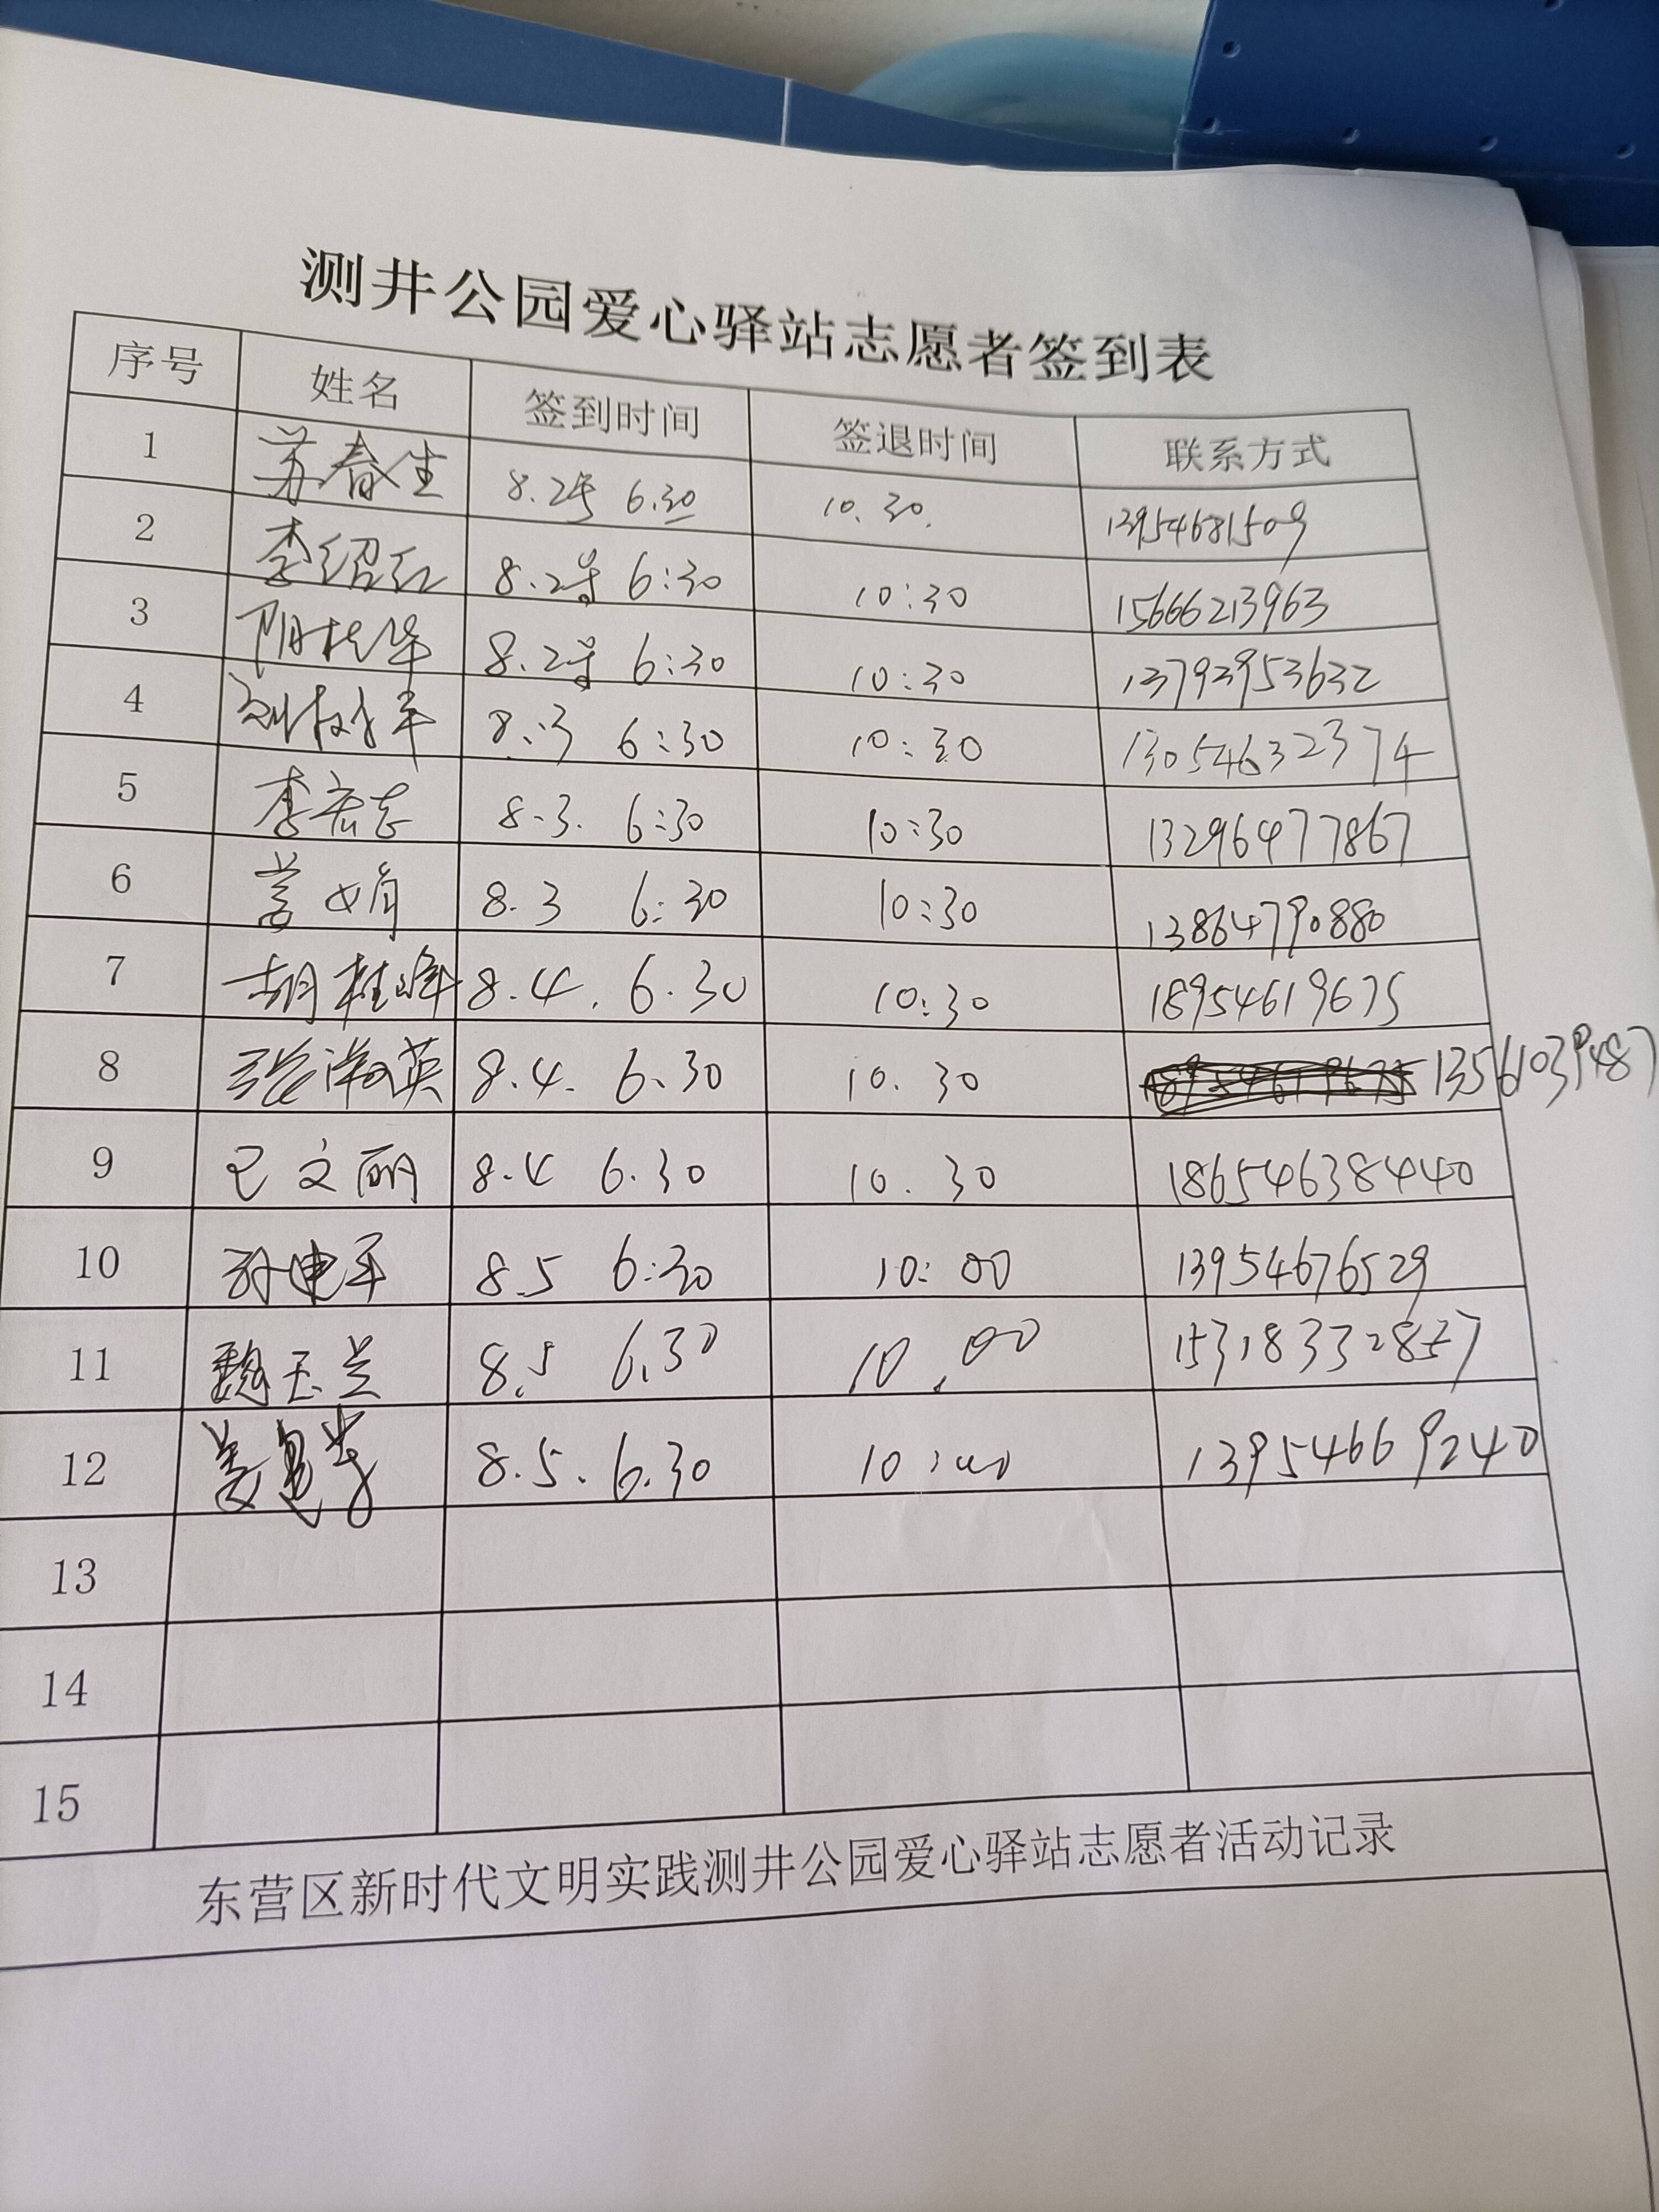 测井公园爱心驿站志愿者签到表
序号 姓名 签到时间 签退时间 联系方式
1 苏春生 8.2号 6.30 10.30. 13954681509
2 李绍红 8.2号 6:30 10:30 15666213963
3 阳桂华 8.2号 6:30 10:30 13793953632
4 刘树军 8.3 6:30 10:30 13054632374
5 李宏志 8.3. 6:30 10:30 13296477867
6 8.3 6:30 10:30 13864790880
7 胡桂峰 8.4. 6.30 10:30 18954619675
8 张淑英 8.4. 6.30 10.30 13561039487
9 巴文丽 8.4 6.30 10.30 186546384440
10 孙建军 8.5 6:30 10:00 13954676529
11 魏玉兰 8.5 6.30 10.00 15318332857
12 8.5. 6.30 10:00 13954669240
13
14
15
东营区新时代文明实践测井公园爱心驿站志愿者活动记录